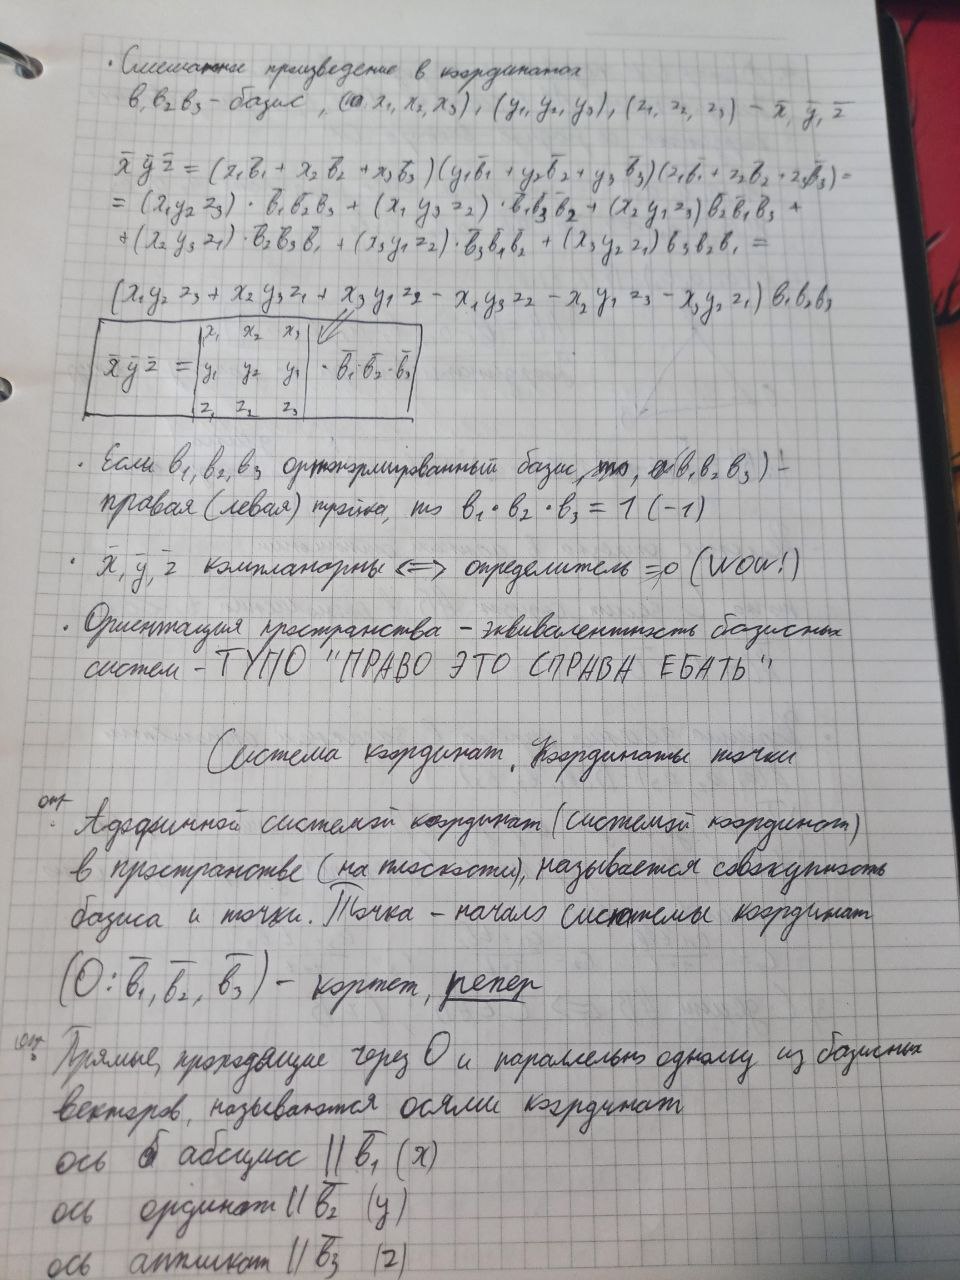 · Смешанное произведение в координатах
в₁ в₂ в₃ - базис, (x₁, x₂, x₃), (y₁, y₂, y₃), (z₁, z₂, z₃) - x̄, ȳ, z̄
x̄ ȳ z̄ = (x₁b̄₁ + x₂b̄₂ + x₃b̄₃)(y₁b̄₁ + y₂b̄₂ + y₃b̄₃)(z₁b̄₁ + z₂b̄₂ + z₃b̄₃) =
= (x₁y₂z₃) · b̄₁b̄₂b̄₃ + (x₁y₃z₂) · b̄₁b̄₃b̄₂ + (x₂y₁z₃) b̄₂b̄₁b̄₃ +
+ (x₂y₃z₁) · b̄₂b̄₃b̄₁ + (x₃y₁z₂) · b̄₃b̄₁b̄₂ + (x₃y₂z₁) b₃b₂b₁ =
(x₁y₂z₃ + x₂y₃z₁ + x₃y₁z₂ - x₁y₃z₂ - x₂y₁z₃ - x₃y₂z₁) b₁b₂b₃
x₁ x₂ x₃
x̄ ȳ z̄ = | y₁ y₂ y₃ | · b̄₁ · b̄₂ · b̄₃
z₁ z₂ z₃
· Если в₁, в₂, в₃ ортонормированный базис, (в₁ в₂ в₃) -
правая (левая) тройка, то в₁ · в₂ · в₃ = 1 (-1)
· x̄, ȳ, z̄ компланарны <=> определитель = 0 (WOW!)
· Ориентация пространства - эквивалентность базисных
систем - ТУПО "ПРАВО ЭТО СПРАВА ЕБАТЬ"
Система координат. Координаты точки
опр
: Аффинной системой координат (системой координат)
в пространстве (на плоскости), называется совокупность
базиса и точки. Точка - начало системы координат
(O: b̄₁, b̄₂, b̄₃) - кортеж, репер
опр
: Прямые, проходящие через O и параллельно одному из базисных
векторов, называются осями координат
ось абсцисс || b̄₁ (x)
ось ординат || b̄₂ (y)
ось аппликат || b̄₃ (z)